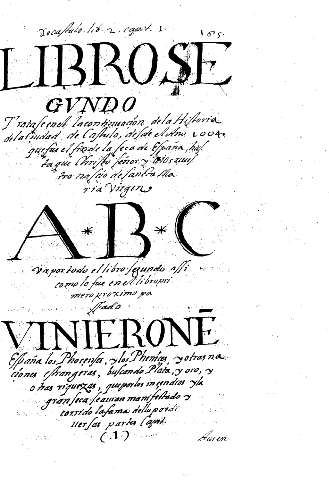 De castulo. lib. 2. capit. 1. 165.
LIBRO SE
GVNDO
Tratase en el la continuacion de la Historia
de la ciudad de Castulo, desde el año 2004
que fue el fin de la seca de España, has
ta que Christo señor y Dios nues
tro nascio de santa Ma
ria Virgen
A * B * C
Va por todo el libro segundo assi
como lo fue en el libro pri
mero proximo pa
ssado
VINIERON Ē
España los Phocenses, y los Phenices, y otras na
ciones estrangeras, buscando Plata, y oro, y
otras riquezas, que por los incendios y la
gran seca se avian manifestado y
corrido la fama dello por di
versas partes
(.1.)